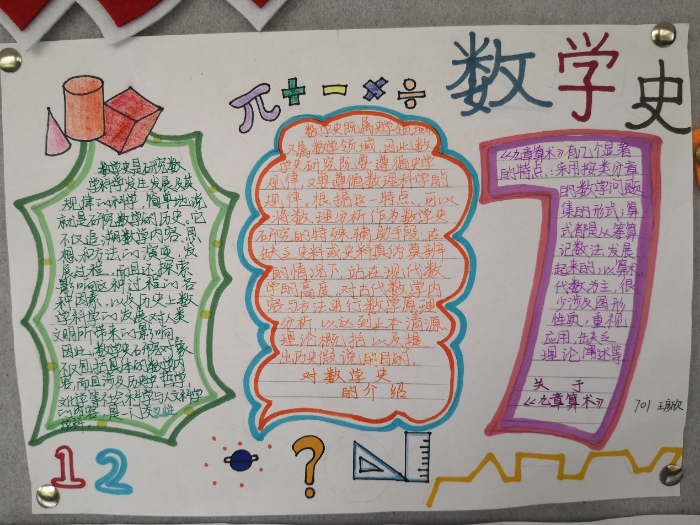 数学史
π + - × ÷
数学史是研究数
学科学发生发展及其
规律的科学,简单地说
就是研究数学的历史。它
不仅追溯数学内容、思
想和方法的演变、发
展过程,而且还探索
影响这种过程的各
种因素,以及历史上数
学科学的发展对人类
文明所带来的影响。
因此,数学史研究对象
不仅包括具体的数学内
容,而且涉及历史学、哲学、
文化学等社会科学与人文科学
的内容,是一门交叉性
学科。
数学史既属史学领域,
又属数学领域,因此,数
学史研究既要遵循史学
规律,又要遵循数理科学的
规律。根据这一特点,可以
将数理分析作为数学史
研究的特殊辅助手段,在
缺乏史料或史料真伪莫辨
的情况下,站在现代数
学的高度,对古代数学内
容与方法进行数学原理
分析,以达到正本清源、
理论概括以及提
出历史假说的目的。
对数学史
的介绍
《九章算术》有几个显著
的特点:采用按类分章
的数学问题
集的形式;算
式都是从筹算
记数法发展
起来的,以算术、
代数为主,很
少涉及图形
性质;重视
应用,缺乏
理论阐述等。
关于
《九章算术》
701
1 2
?